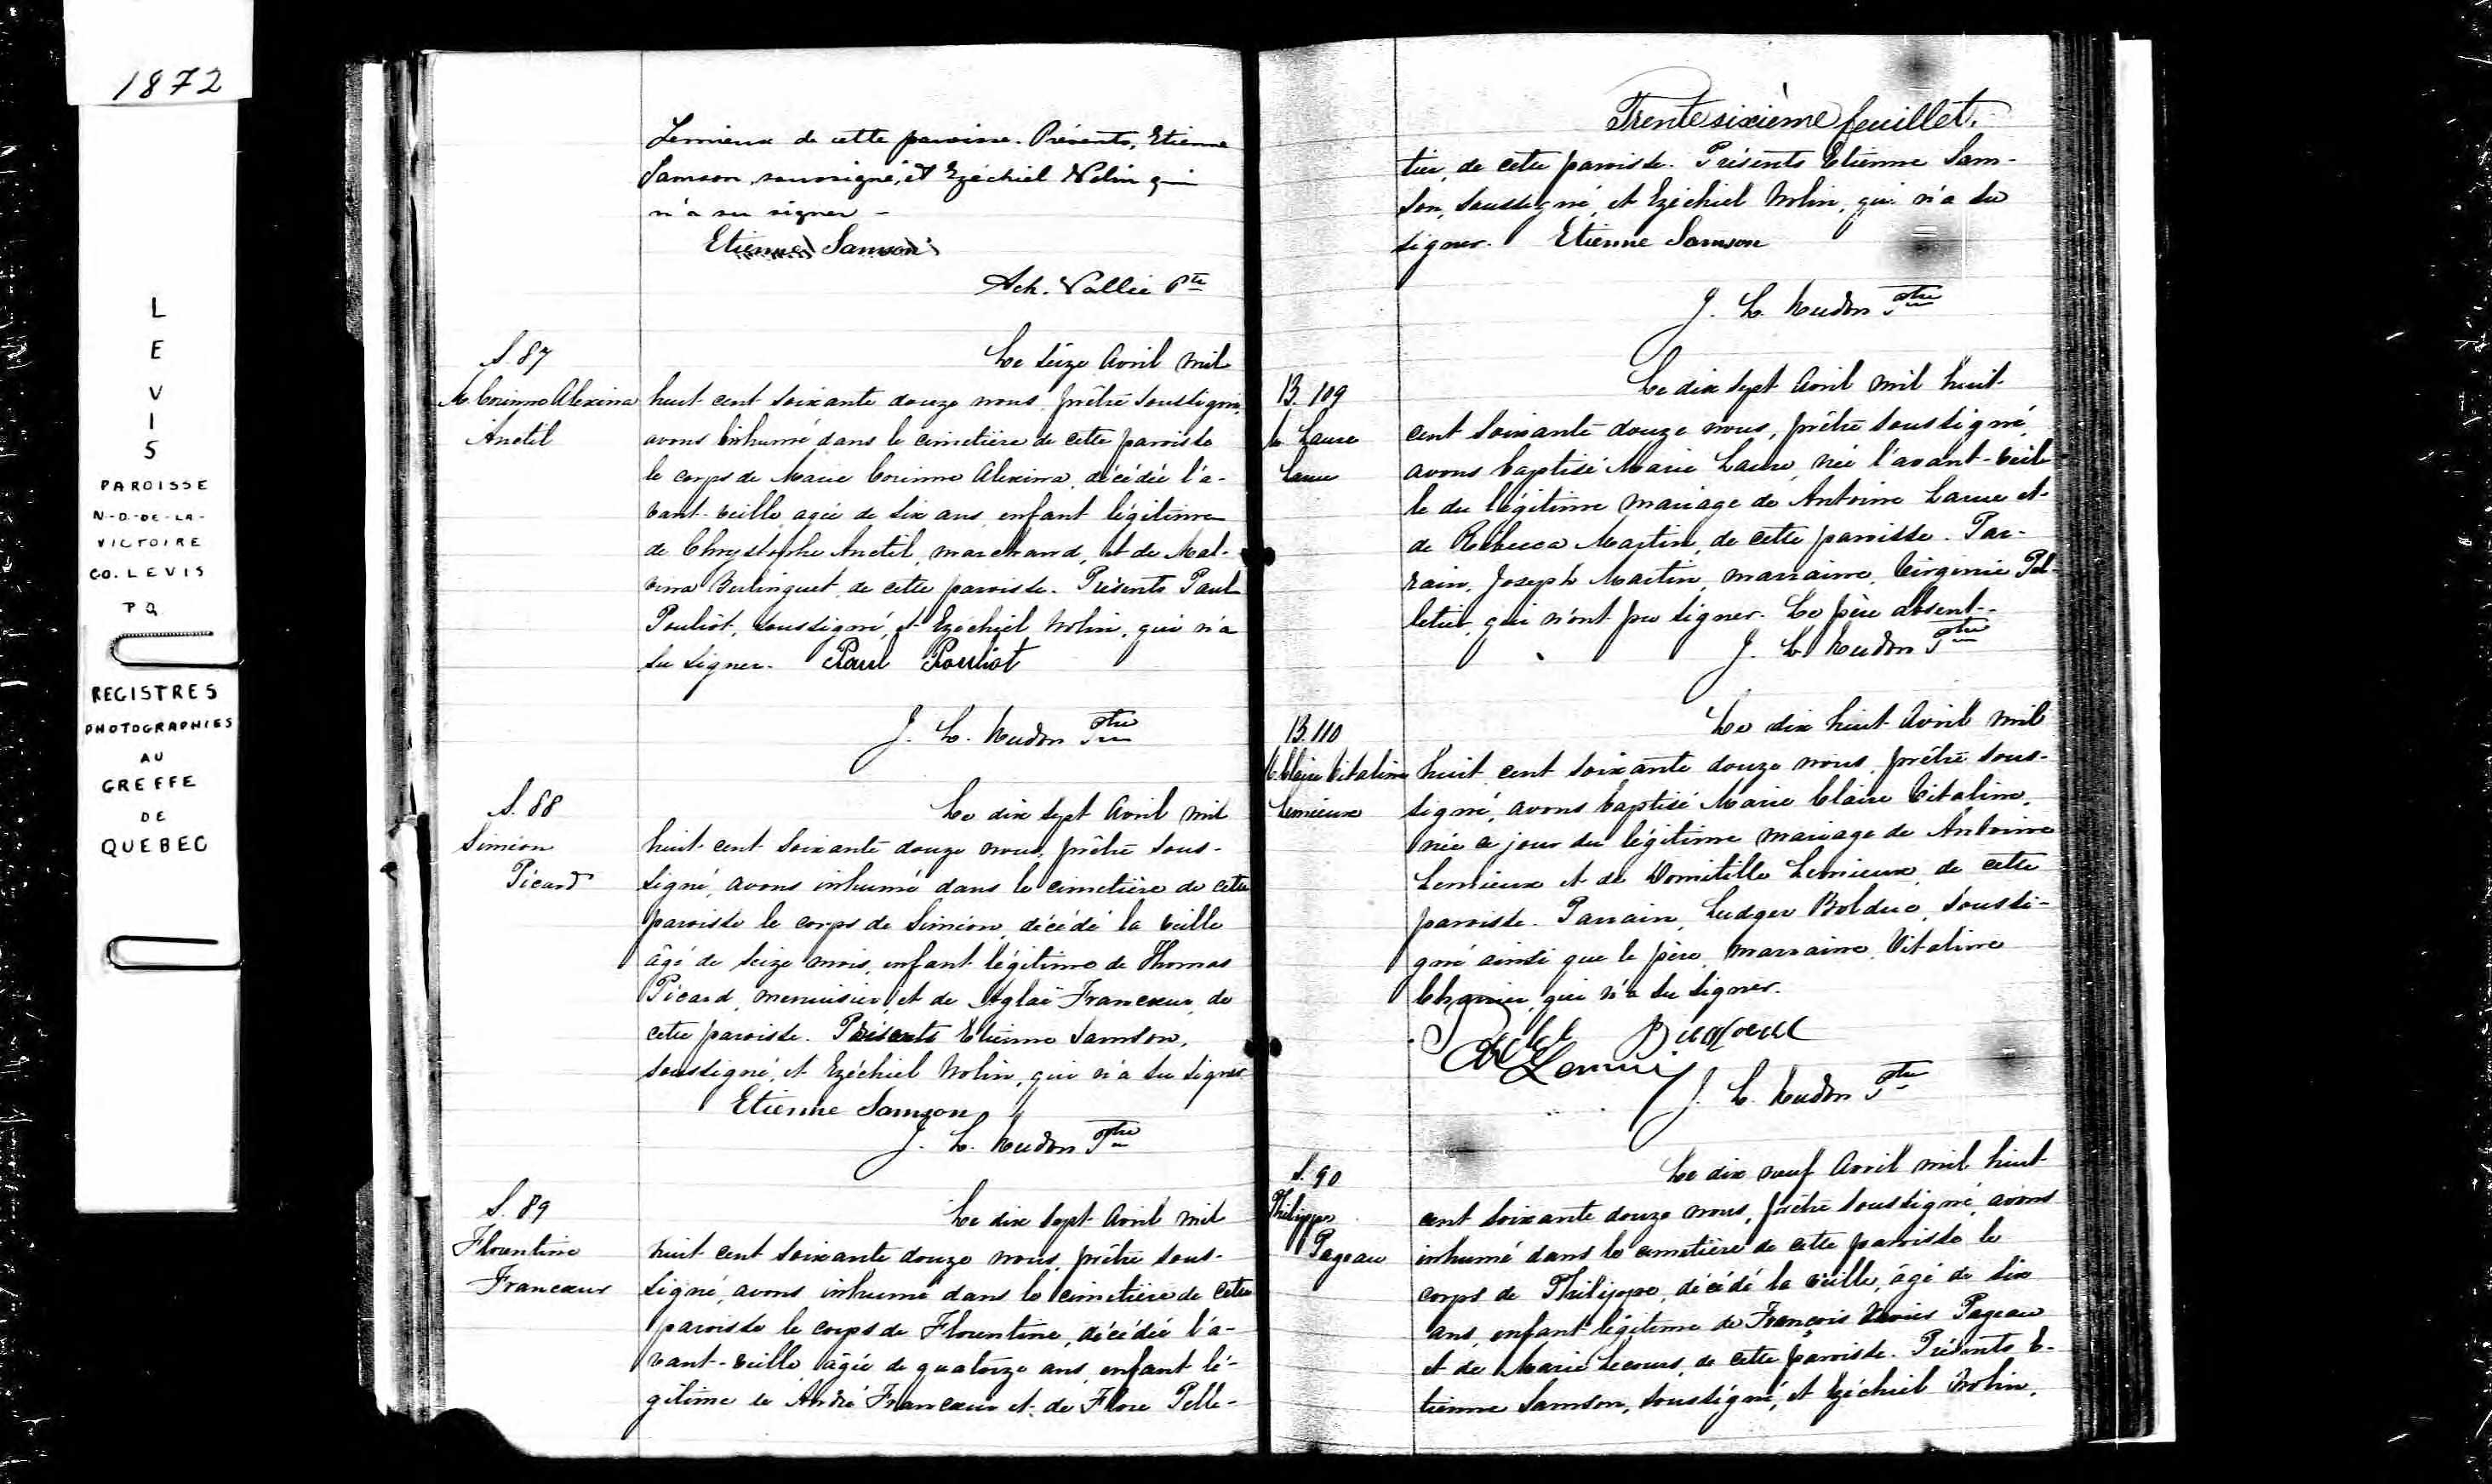 1872
L
E
V
I
S
PAROISSE
N-D-DE-LA-
VICTOIRE
CO. LEVIS
P Q
REGISTRES
PHOTOGRAPHIES
AU
GREFFE
DE
QUEBEC
Lemieux de cette paroisse. Présents, Etienne
Samson, soussigné, et Ezéchiel Nolin qui
n'a su signer -
Etienne Samson
Ach. Vallée Ptre
S. 87
M. Corinne Alexina
Anctil
Le seize Avril mil
huit cent soixante douze nous, prêtre soussigné,
avons inhumé dans le cimetière de cette paroisse
le corps de Marie Corinne Alexina, décédée l'a-
vant-veille, agée de six ans, enfant légitime
de Chrystophe Anctil, marchand, et de Mal-
vina Berlinguet, de cette paroisse. Présents Paul
Pouliot, soussigné, et Ezéchiel Nolin, qui n'a
su signer. Paul Pouliot
J. L. Hudon Ptre
S. 88
Siméon
Picard
Le dix sept Avril mil
huit cent soixante douze nous, prêtre sous-
signé, avons inhumé dans le cimetière de cette
paroisse le corps de Siméon, décédé la veille
âgé de seize mois, enfant légitime de Thomas
Picard, menuisier, et de Aglaé Francœur, de
cette paroisse. Présents Etienne Samson,
soussigné, et Ezéchiel Nolin, qui n'a su signer
Etienne Samson
J. L. Hudon Ptre
S. 89
Florentine
Francœur
Le dix sept Avril mil
huit cent soixante douze nous, prêtre sous-
signé, avons inhumé dans le cimetière de cette
paroisse le corps de Florentine, décédée l'a-
vant-veille, âgée de quatorze ans, enfant lé-
gitime de André Francœur et de Flore Pelle-
Trente sixième feuillet.
tier, de cette paroisse. Présents Etienne Sam-
son, soussigné, et Ezéchiel Nolin, qui n'a su
signer. Etienne Samson
J. L. Hudon Ptre
B. 109
M. Laure
Larue
Le dix sept Avril mil huit
cent soixante douze nous, prêtre soussigné,
avons baptisé Marie Laure, née l'avant-veil-
le du légitime mariage de Antoine Larue et
de Rebecca Martin, de cette paroisse. Par-
rain, Joseph Martin, marraine, Virginie Pel-
letier, qui n'ont pu signer. Le père absent.
J. L. Hudon Ptre
B. 110
M. Claire Vitaline
Lemieux
Le dix huit Avril mil
huit cent soixante douze nous, prêtre sous-
signé, avons baptisé Marie Claire Vitaline,
née ce jour du légitime mariage de Antoine
Lemieux et de Domitille Lemieux, de cette
paroisse. Parrain, Ludger Bolduc, soussi-
gné ainsi que le père, marraine, Vitaline
qui n'a su signer.
J. L. Hudon Ptre
S. 90
Philippe
Pageau
Le dix neuf Avril mil huit
cent soixante douze nous, prêtre soussigné, avons
inhumé dans le cimetière de cette paroisse le
corps de Philippe, décédé la veille, âgé de six
ans, enfant légitime de François Pageau
et de Marie Lecours, de cette paroisse. Présents E-
tienne Samson, soussigné, et Ezéchiel Nolin,